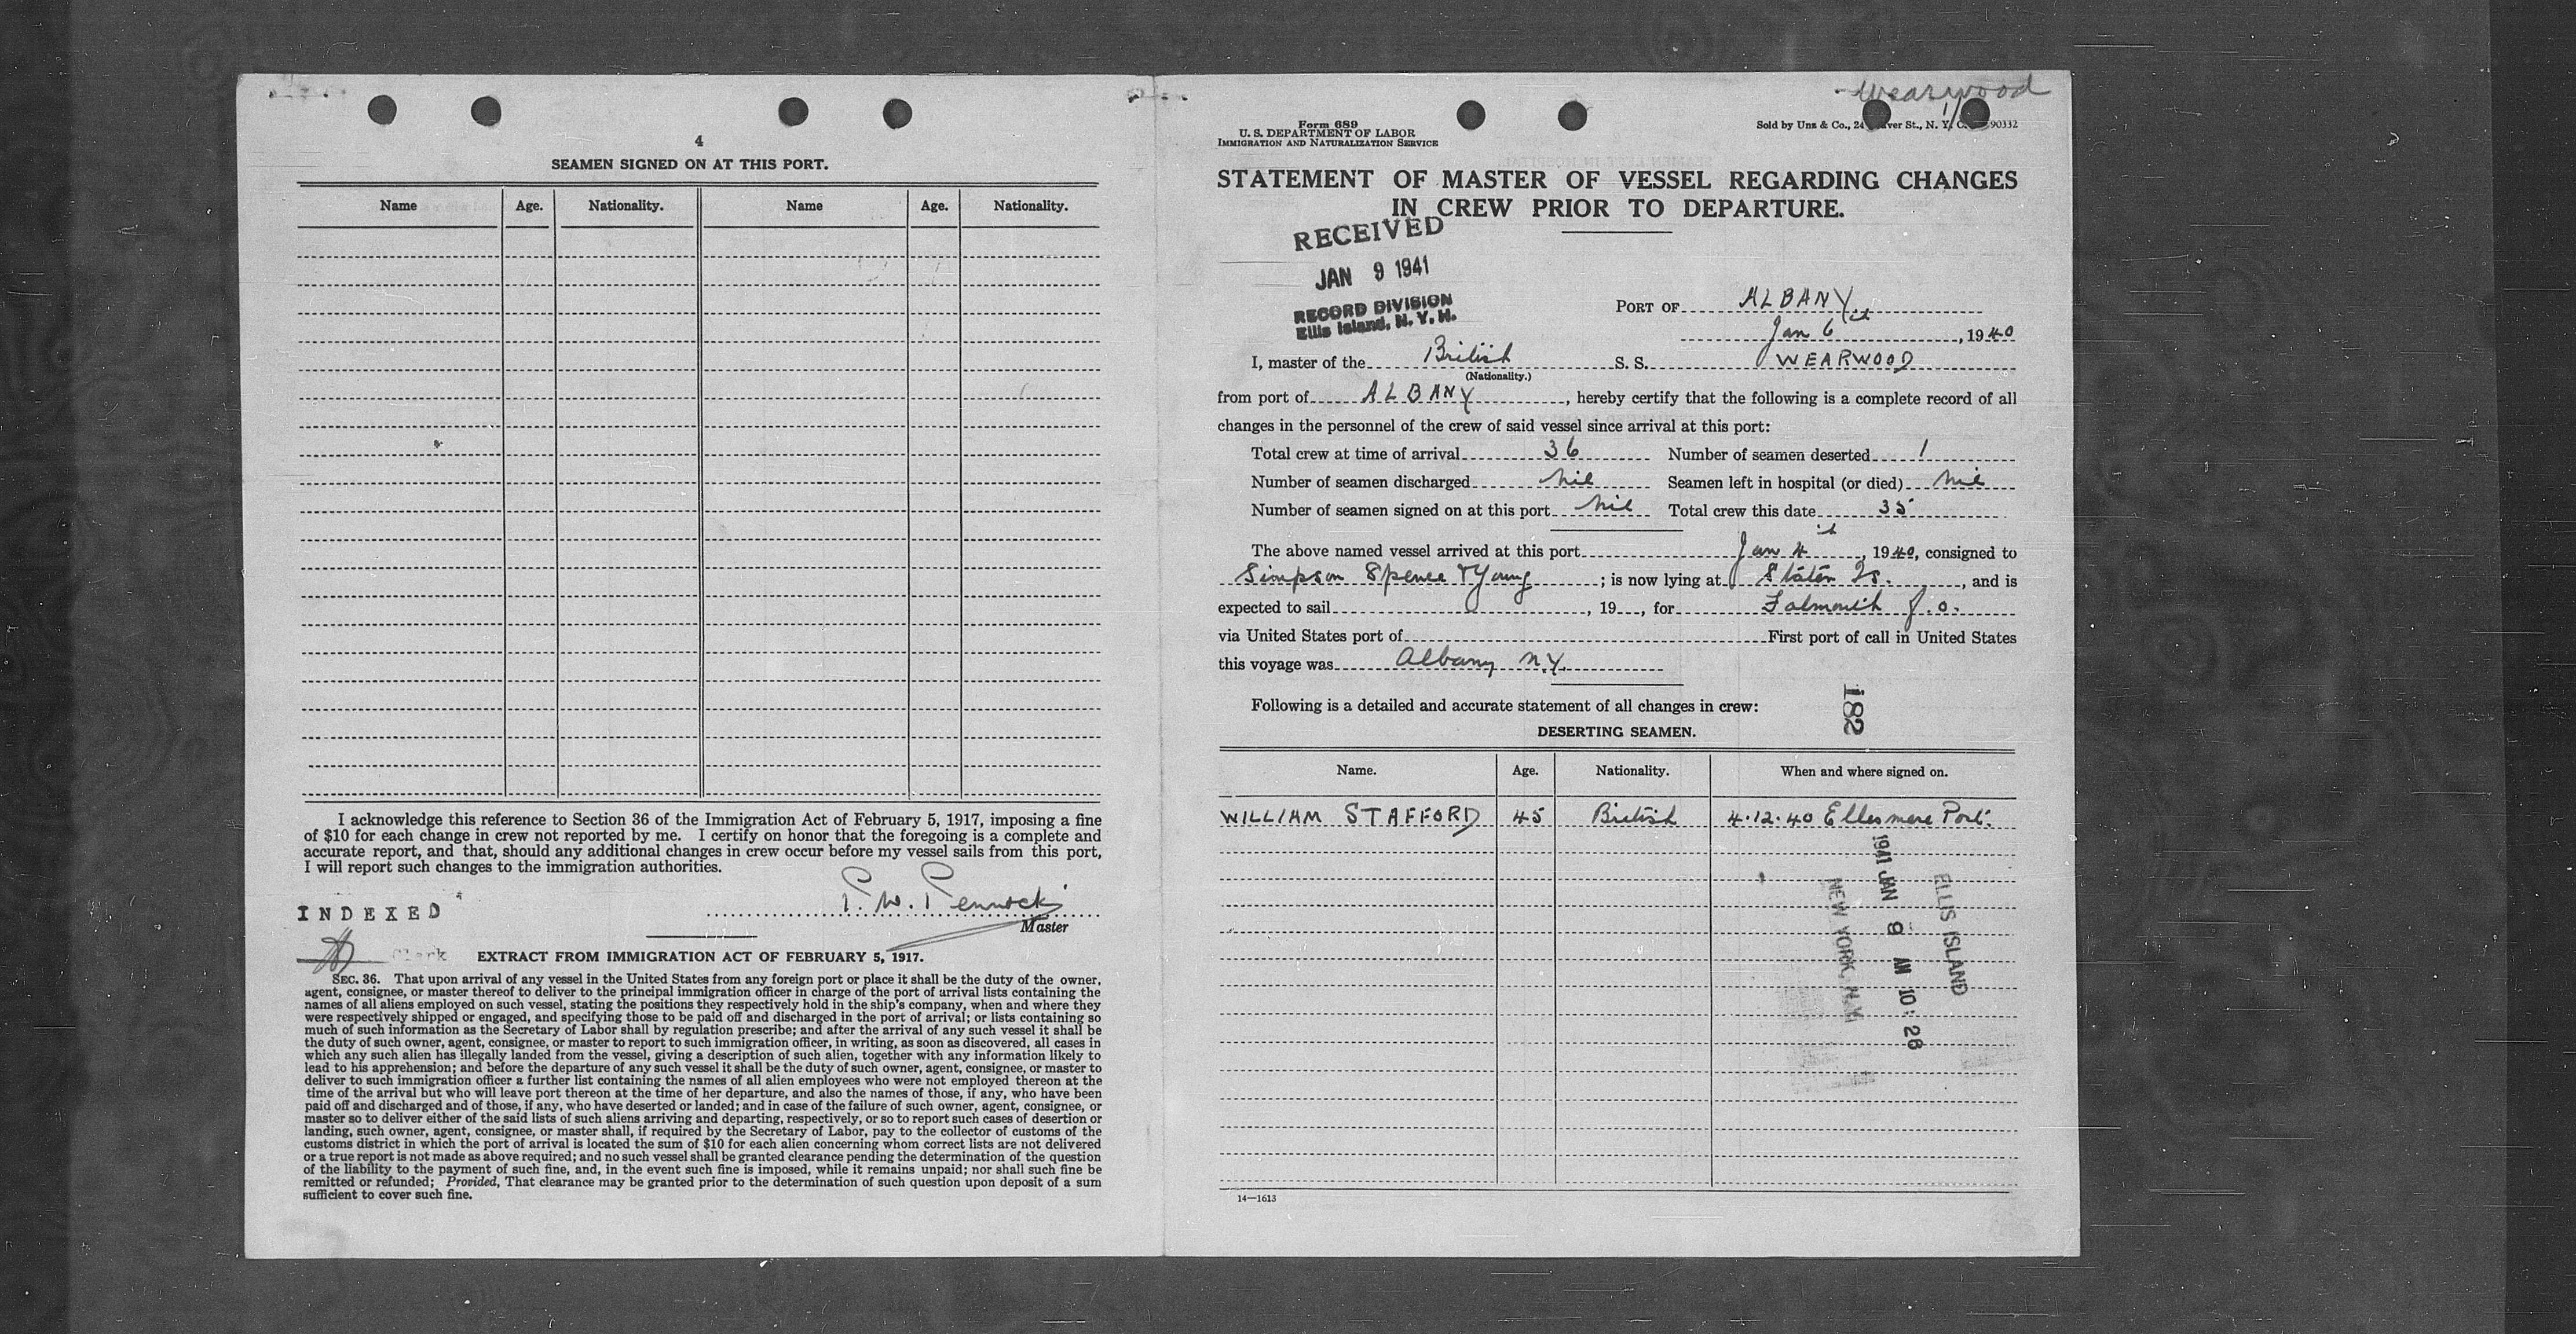 4
SEAMEN SIGNED ON AT THIS PORT.
Name Age. Nationality. Name Age. Nationality.
I acknowledge this reference to Section 36 of the Immigration Act of February 5, 1917, imposing a fine
of $10 for each change in crew not reported by me. I certify on honor that the foregoing is a complete and
accurate report, and that, should any additional changes in crew occur before my vessel sails from this port,
I will report such changes to the immigration authorities.
INDEXED
P. W. Pennock
Master
Clerk
EXTRACT FROM IMMIGRATION ACT OF FEBRUARY 5, 1917.
SEC. 36. That upon arrival of any vessel in the United States from any foreign port or place it shall be the duty of the owner,
agent, consignee, or master thereof to deliver to the principal immigration officer in charge of the port of arrival lists containing the
names of all aliens employed on such vessel, stating the positions they respectively hold in the ship's company, when and where they
were respectively shipped or engaged, and specifying those to be paid off and discharged in the port of arrival; or lists containing so
much of such information as the Secretary of Labor shall by regulation prescribe; and after the arrival of any such vessel it shall be
the duty of such owner, agent, consignee, or master to report to such immigration officer, in writing, as soon as discovered, all cases in
which any such alien has illegally landed from the vessel, giving a description of such alien, together with any information likely to
lead to his apprehension; and before the departure of any such vessel it shall be the duty of such owner, agent, consignee, or master to
deliver to such immigration officer a further list containing the names of all alien employees who were not employed thereon at the
time of the arrival but who will leave port thereon at the time of her departure, and also the names of those, if any, who have been
paid off and discharged and of those, if any, who have deserted or landed; and in case of the failure of such owner, agent, consignee, or
master so to deliver either of the said lists of such aliens arriving and departing, respectively, or so to report such cases of desertion or
landing, such owner, agent, consignee, or master shall, if required by the Secretary of Labor, pay to the collector of customs of the
customs district in which the port of arrival is located the sum of $10 for each alien concerning whom correct lists are not delivered
or a true report is not made as above required; and no such vessel shall be granted clearance pending the determination of the question
of the liability to the payment of such fine, and, in the event such fine is imposed, while it remains unpaid; nor shall such fine be
remitted or refunded; Provided, That clearance may be granted prior to the determination of such question upon deposit of a sum
sufficient to cover such fine.
Wearwood
Form 689
U. S. DEPARTMENT OF LABOR
IMMIGRATION AND NATURALIZATION SERVICE
Sold by Unz & Co., 24 ver St., N. Y. C. 90332
STATEMENT OF MASTER OF VESSEL REGARDING CHANGES
IN CREW PRIOR TO DEPARTURE.
RECEIVED
JAN 9 1941
RECORD DIVISION
Ellis Island, N. Y. H.
PORT OF ALBANY
Jan 6th, 1940
I, master of the British S. S. WEARWOOD
(Nationality.)
from port of ALBANY, hereby certify that the following is a complete record of all
changes in the personnel of the crew of said vessel since arrival at this port:
Total crew at time of arrival 36 Number of seamen deserted 1
Number of seamen discharged nil Seamen left in hospital (or died) nil
Number of seamen signed on at this port nil Total crew this date 35
The above named vessel arrived at this port Jan 4th, 1940, consigned to
Simpson Spence & Young; is now lying at Staten Is., and is
expected to sail, 19, for Falmouth f.o.
via United States port of First port of call in United States
this voyage was Albany N.Y.
Following is a detailed and accurate statement of all changes in crew:
182
DESERTING SEAMEN.
Name. Age. Nationality. When and where signed on.
WILLIAM STAFFORD 45 British 4.12.40 Ellesmere Port.
1941 JAN 9 AM 10:26
ELLIS ISLAND
NEW YORK, H.
14—1613